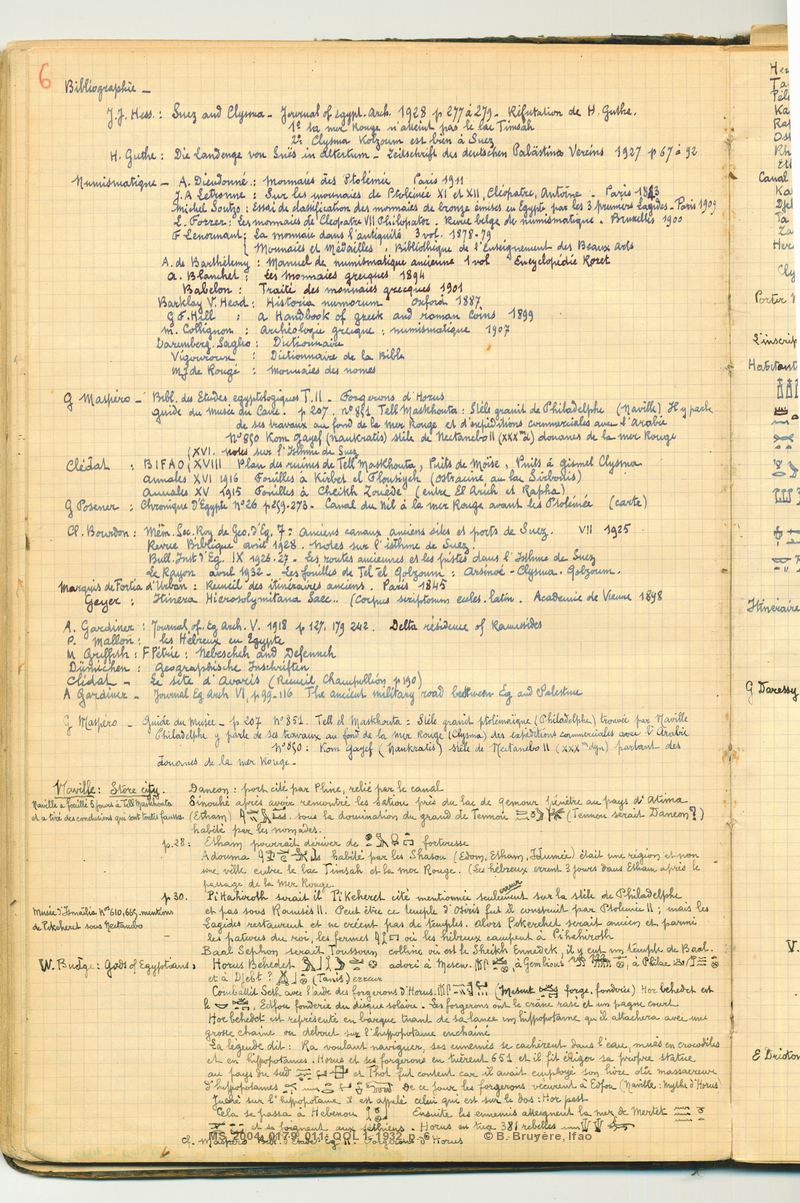 6
Bibliographie _
J.J. Hess : Suez and Clysma _ Journal of Egypt. Arch. 1928 p 277 à 279 _ Réfutation de H. Guthe.
1° la mer Rouge n'atteint pas le lac Timsah
2° Clysma Kolzoum est bien à Suez
H. Guthe : Die Landenge von Suës in altertum _ Zeitschrift des deutschen Palästina Vereins 1927 p 67 à 92
Numismatique _ A. Dieudonné : Monnaies des Ptolémée Paris 1911
J.A Letronne : Sur les monnaies de Ptolémée XI et XII, Cléopatre, Antoine _ Paris
Michel Soutzo : Essai de classification des monnaies de bronze émises en Egypte par les 3 premiers Lagides _ Paris 1909
L. Forrer : les monnaies de Cléopatre VII Philopator _ Revue belge de numismatique _ Bruxelles 1900
F Lenormant : La monnaie dans l'antiquité 3 vol. 1878-79
Monnaies et Médailles . Bibliothèque de l'Enseignement des Beaux Arts
A. de Barthélemy : Manuel de numismatique ancienne 1 vol Encyclopédie Roret
A. Blanchet : Les monnaies grecques 1894
Babelon : Traité des monnaies grecques 1901
Barklay V. Head : Historia numorum Oxford 1887
G F. Hill : A Handbook of greek and roman coins 1899
M. Collignon : Archéologie grecque : numismatique 1907
Daremberg. Saglio : Dictionnaire
Vigouroux : Dictionnaire de la Bible
de Rougé : monnaies des nomes
G Maspéro _ Bibl. des Etudes egyptologiques T. II _ Forgerons d'Horus
Guide du musée du Caire . p 207. n° 851 Tell Maskhouta : Stèle granit de Philadelphe (Naville) Il y parle
de ses travaux au fond de la mer Rouge et d'expéditions commerciales avec l'Arabie
N° 850 Kom Gayef (Naukratis) stèle de Nectanebo II (XXX dyn) douanes de la mer Rouge
XVI. notes sur l'Isthme de Suez
Clédat : BIFAO XVIII Plan des ruines de Tell Maskhouta, Puits de Moïse, Puits à Gismel Clysma
Annales XVI 1916 Fouilles à Kirbet el Flousiyeh (Ostracine, au lac Sirbonis)
Annales XV 1915 Fouilles à Cheikh Zouède (entre El Arich et Rapha)
G Posener : Chronique d'Egypte N° 26 p 259-273 _ Canal du Nil à la mer Rouge avant les Ptolémée (carte)
Cl. Bourdon : Mém. Soc. Roy de Geo. d'Eg. 7 : Anciens canaux anciens sites et ports de Suez. VII 1925
Revue Biblique avril 1928 _ Notes sur l'isthme de Suez
Bull. Inst d'Eg. IX 1926-27 _ Les routes anciennes et les pistes dans l'Isthme de Suez
Le Rayon avril 1932 _ Les fouilles de Tel el Qolzoum : Arsinoé - Clysma - Qolzoum.
Marquis de Fortia d'Urban : Recueil des itinéraires anciens . Paris 1845
Geyer : Itinera Hierosolymitana Saec.. (Corpus scriptorum eccles. latin . Academie de Vienne 1898
A. Gardiner : Journal of. Eg Arch. V. 1918 p 127. 179 242. Delta résidence of Ramessides
P. Mallon : les Hébreux en Egypte
M Griffith : F. Pétrie : Nebescheh and Defenneh
Dümichen : Geographische Inschriften
Clédat _ Le site d'Avaris (Recueil Champollion p 190)
A Gardiner _ Journal Eg Arch VI, p 99-116 The ancient military road between Eg and Palestine
G Maspero _ Guide du Musée _ p 207 N° 851. Tell el Maskhouta = Stèle granit ptolémaïque (Philadelphe) trouvée par Naville
Philadelphe y parle de ses travaux au fond de la mer Rouge (Clysma) des expéditions commerciales avec l'Arabie
N° 850 : Kom Gayef (Naukratis) stèle de Nectanebo II (XXX dyn) parlant des
douanes de la mer Rouge _
Naville : Store city. Daneon : port cité par Pline, relié par le canal
Naville a fouillé 5 jours à Tell Maskhouta
et a tiré des conclusions qui sont toutes fausses
Sinouhé après avoir remonté les station près du lac de Qemour pénètre au pays d'Atima
(Etham) sous la domination du grand de Tennou (Tennou serait Daneon ?)
habité par les nomades.
p. 28 : Etham pourrait dériver de forteresse
Adouma habité par les Shasou (Edom, Etham, Idumée) était une région et non
une ville entre le lac Timsah et la mer Rouge. (Les hébreux errent 3 jours dans Etham après le
passage de la Mer Rouge
p 30. Pikahiroth serait il Pi Keheret cité mentionnée seulement sur la stèle de Philadelphe
Musée d'Ismaïlia N° 610, 665. mentions
de Pikeheret sous Nectanebo
et pas sous Ramsès II. Peut être ce temple d'Osiris fut il construit par Ptolémée II ; mais les
Lagides restaurent et ne créent pas de temples. Alors Pikerehet serait ancien et parmi
les patures du roi, les fermes où les hébreux campent à Pihahiroth
Baal Sephon serait Toussoum colline où est le Sheikh Ennedek, il y eut un temple de Baal.
W. Budge : Gods of Egyptians : Horus Behedet adoré à Mesen, à Gemtious, à Philae
et à Djebt ? (Tanis) erreur
Combattit Seth avec l'aide des forgerons d'Horus (Mesent forge, fonderie) Hor behedet est
le Edfou fonderie du disque solaire. Les forgerons ont le crâne rasé et un pagne court
Hor behedet est représenté en barque tuant de sa lance un hippopotame qu'il attachera avec une
grosse chaine ou debout sur l'hippopotame enchainé
La légende dit : Ra voulant naviguer, ses ennemis se cachèrent dans l'eau, mués en crocodiles
et en hippopotames. Horus et ses forgerons en tuèrent 651 et il fit ériger sa propre statue
au pays du sud et Thot fut content car il avait employé son livre du massacreur
d'hippopotames De ce jour les forgerons vécurent à Edfou (Naville : Mythe d'Horus)
Juché sur l'hippopotame il est appelé celui qui est sur le dos : Hor pest
Cela se passa à Hebenou Ensuite les ennemis atteignent la mer de Mertet
et se joignent aux séthiens. Horus en tua 381 rebelles
cf. Maspero Bibl. Etude Eg. II. Forgerons d'Horus
MS_2004_0179_011: QOL 1, 1932, p. 6 © B. Bruyère, Ifao
Canal
Porter
L'inscrip
Habitant
Itinéraire
G Daressy
V.
E Drioton